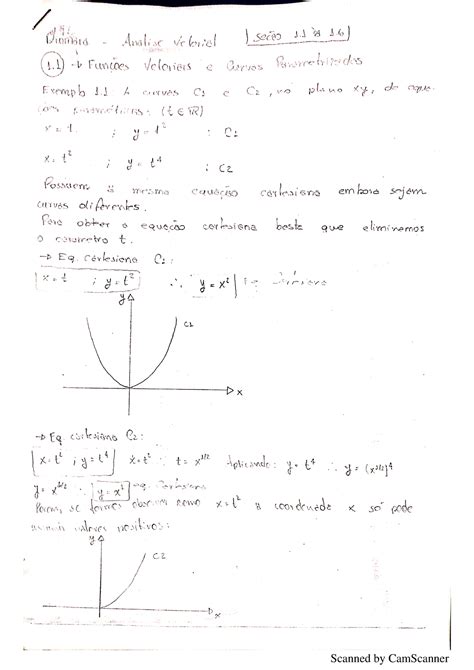 Dinâmica - Análise Vetorial | Seção 1.1 à 1.6
1.1 → Funções Vetoriais e Curvas Parametrizadas
Exemplo 1.1: A curvas C1 e C2, no plano xy, de equa-
ções paramétricas: (t ∈ ℝ)
x = t ; y = t² : C1
x = t² ; y = t⁴ : C2
Possuem a mesma equação cartesiana embora sejam
curvas diferentes.
Para obter a equação cartesiana basta que eliminemos
o parâmetro t.
→ Eq. cartesiana C1:
x = t ; y = t² ∴ y = x² Eq.
y
C1
x
→ Eq. cartesiana C2:
x = t² ; y = t⁴ x = t² ∴ t = x^1/2 Aplicando: y = t⁴ ∴ y = (x^1/2)⁴
∴ y = x² eq. cartesiana
Porém, se formos observar como x = t² a coordenada x só pode
valores positivos:
y
C2
x
Scanned by CamScanner